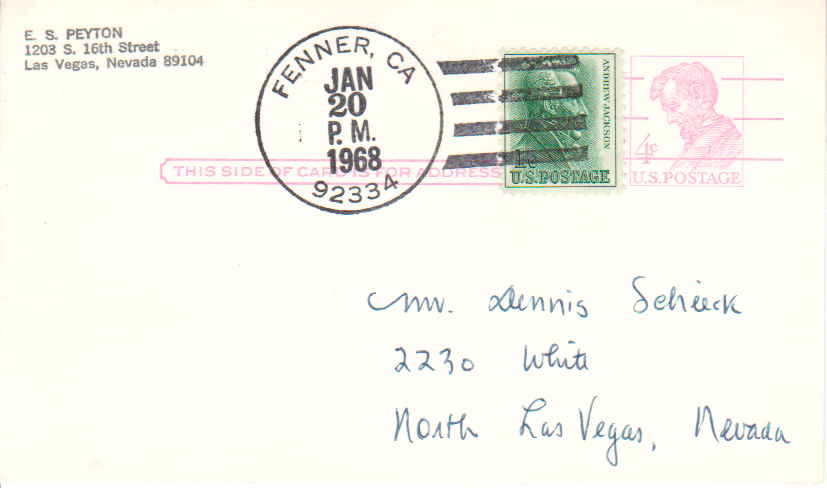 E. S. PEYTON
1203 S. 16th Street
Las Vegas, Nevada 89104
FENNER, CA
JAN
20
P. M.
1968
92334
ANDREW JACKSON
1c
U.S.POSTAGE
4c
U.S. POSTAGE
THIS SIDE OF CARD IS FOR ADDRESS
Mr. Dennis Scheick
2230 White
North Las Vegas, Nevada